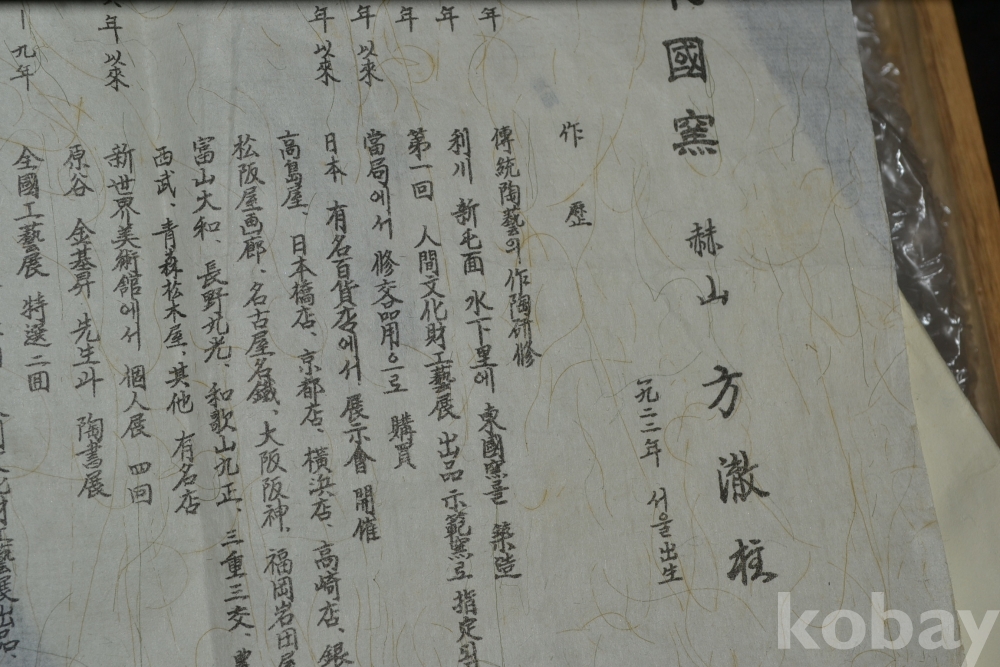 國窯 赫山 方澈柱
一九二二年 서울出生
作歷
年 傳統陶藝의 作陶研修
年 利川 新屯面 水下里에 東國窯를 築造
年 第一回 人間文化財工藝展 出品 示範窯로 指定됨
年以來 當局에서 修交品用으로 購買
年以來 日本 有名百貨店에서 展示會 開催
高島屋、日本橋店、京都店、橫浜店、高崎店、銀
松阪屋画廊、名古屋名鐵、大阪阪神、福岡岩田屋
富山大和、長野丸光、和歌山丸正、三重三交、
西武、青森松木屋、其他 有名店
年以來 新世界美術館에서 個人展 四回
原谷 金基昇 先生과 陶書展
九年 全國工藝展 特選二回
工藝展出品、
kobay